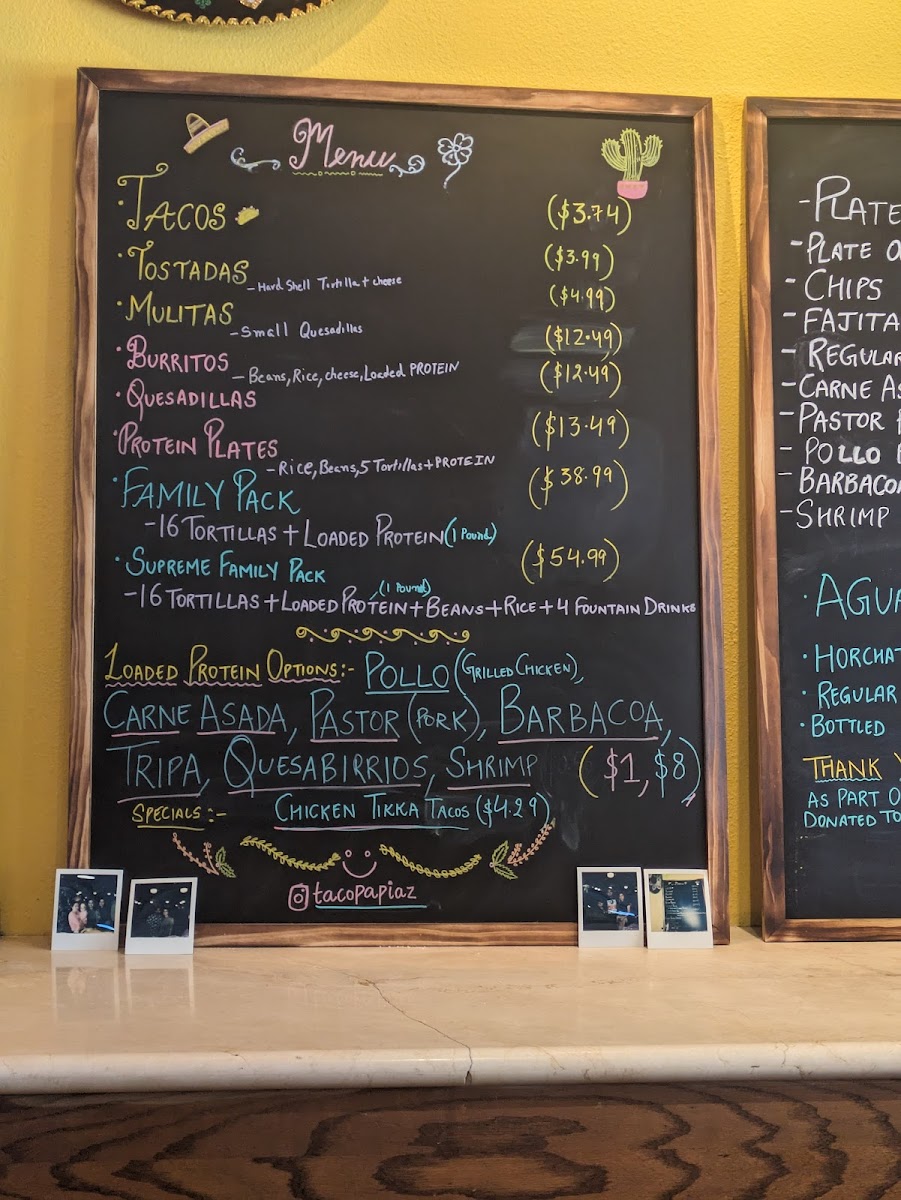 Menu
·TACOS ($3.74)
·TOSTADAS ($3.99)
-Hard Shell Tortilla + cheese
·MULITAS ($4.99)
-Small Quesadillas
·BURRITOS ($12.49)
-Beans, Rice, cheese, Loaded PROTEIN
·QUESADILLAS ($12.49)
·PROTEIN PLATES ($13.49)
-Rice, Beans, 5 Tortillas + PROTEIN
·FAMILY PACK ($38.99)
-16 TORTILLAS + LOADED PROTEIN (1 Pound)
·SUPREME FAMILY PACK ($54.99)
(1 Pound)
-16 TORTILLAS + LOADED PROTEIN + BEANS + RICE + 4 FOUNTAIN DRINKS
LOADED PROTEIN OPTIONS:- POLLO (GRILLED CHICKEN),
CARNE ASADA, PASTOR (PORK), BARBACOA,
TRIPA, QUESABIRRIOS, SHRIMP ($1, $8)
SPECIALS:- CHICKEN TIKKA TACOS ($4.29)
tacopapiaz
-PLATE
-PLATE
-CHIPS
-FAJITA
-REGULAR
-CARNE
-PASTOR
-POLLO
-BARBACOA
-SHRIMP
·AGUA
·HORCHAT
·REGULAR
·BOTTLED
THANK
AS PART
DONATED TO